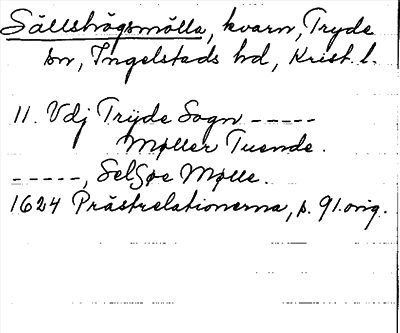 Sällshögsmölla, kvarn, Tryde
sn, Ingelstads hd, Krist. l.
11. Vdj Tryde Sogn -----
Møller Tuende.
-----, Selsøe Mølle.
1624 Prästrelationerna, s. 91. orig.